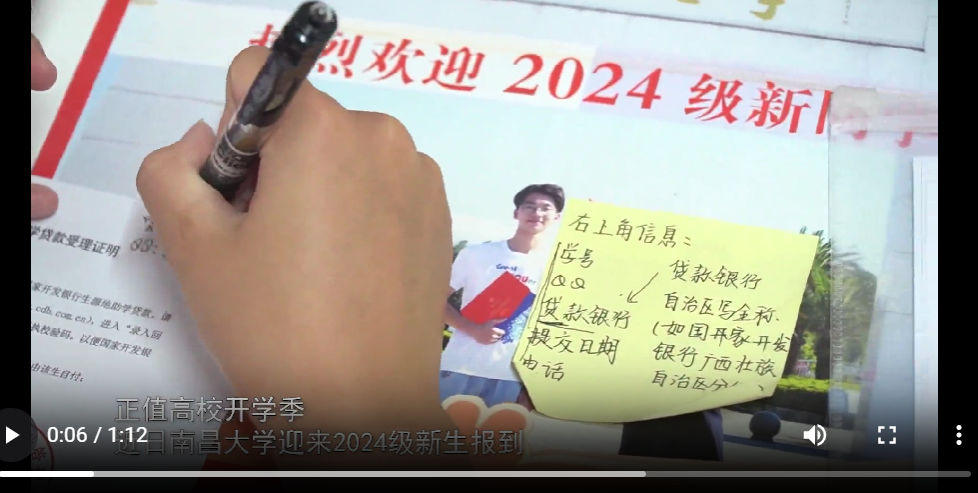 热烈欢迎 2024 级新同学
学贷款受理证明
家开发银行生源地助学贷款，请
.cdb.com.cn)，进入“录入回
执校验码，以便国家开发银
由该生自付。
右上角信息：
学号
QQ
贷款银行
提交日期
电话
贷款银行
自治区写全称.
(如国开家开发
银行广西壮族
自治区分
正值高校开学季
近日南昌大学迎来2024级新生报到
0:06 / 1:12